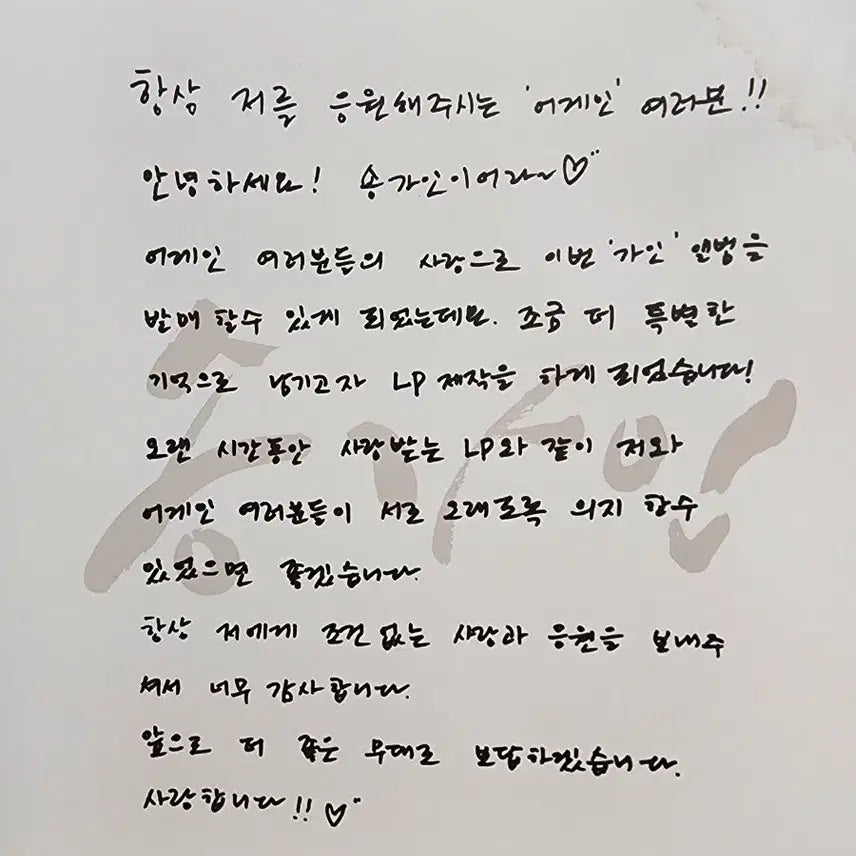 항상 저를 응원해주시는 '어게인' 여러분!!
안녕하세요! 송가인이어라~♡
어게인 여러분들의 사랑으로 이번 '가인' 앨범을
발매 할수 있게 되었는데요. 조금 더 특별한
기억으로 남기고자 LP 제작을 하게 되었습니다!
오랜 시간동안 사랑받는 LP와 같이 저와
어게인 여러분들이 서로 오래도록 의지 할수
있었으면 좋겠습니다.
항상 저에게 조건 없는 사랑과 응원을 보내주
셔서 너무 감사합니다.
앞으로 더 좋은 무대로 보답하겠습니다.
사랑합니다!! ♡